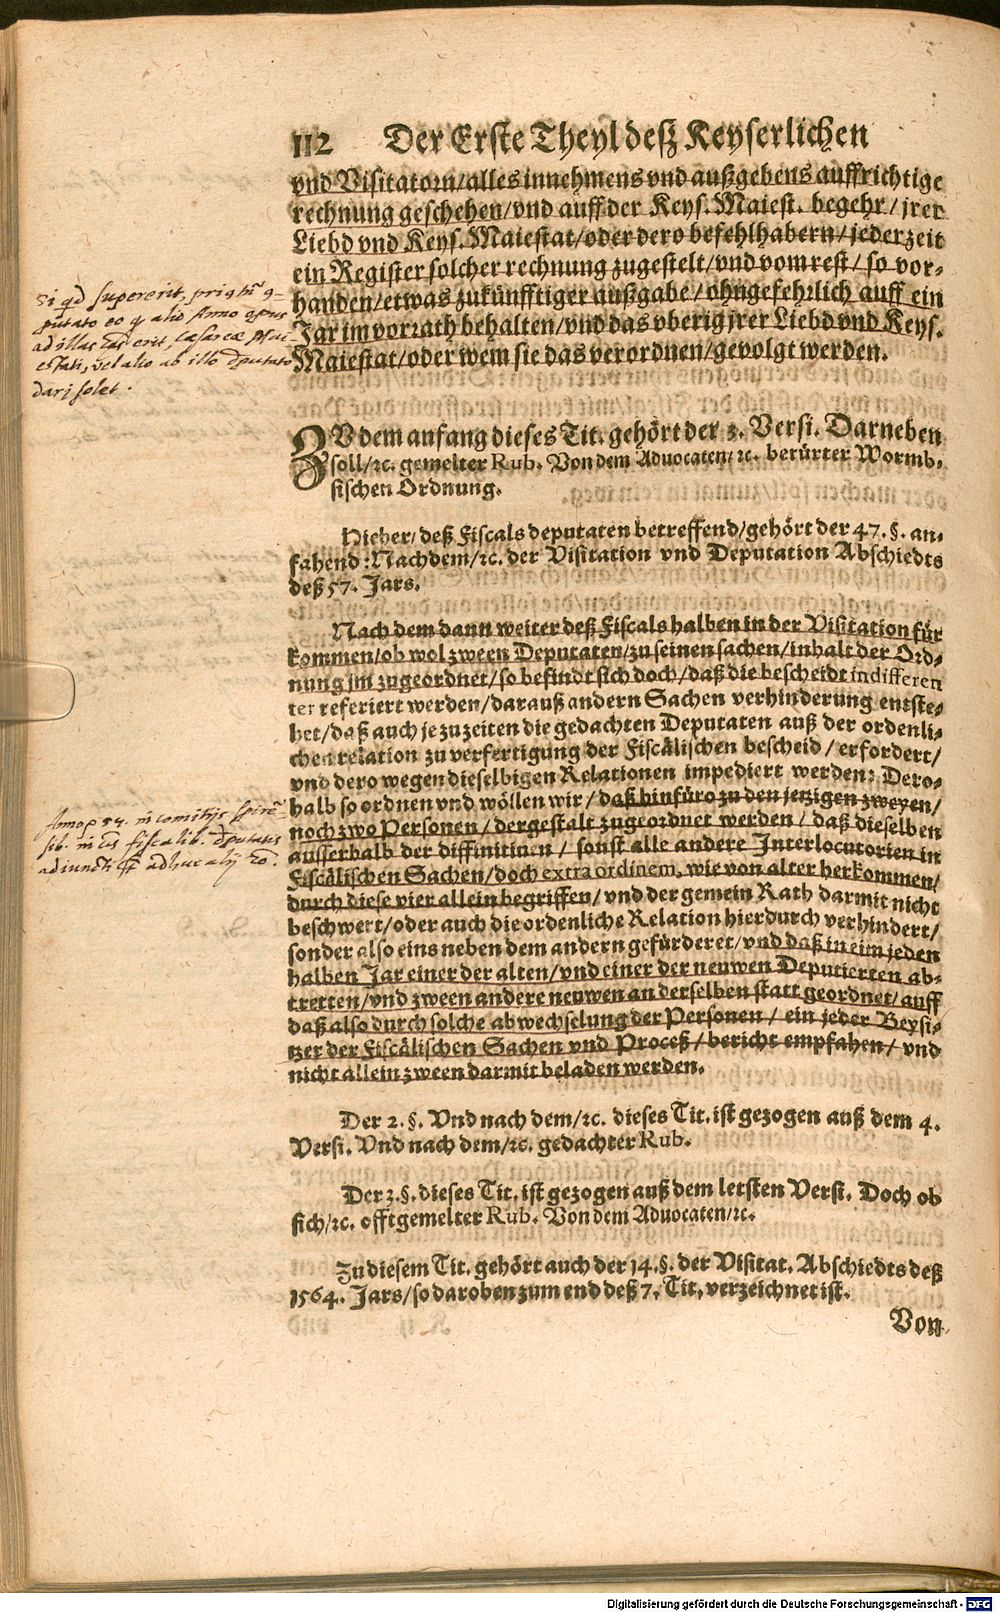 112 Der Erste Theyl deß Keyserlichen
vnd Visitatorn/alles innehmens vnd außgebens auffrichtige
rechnung geschehen/vnd auff der Keys. Maiest. begehr/jrer
Liebd vnd Keys. Maiestat/oder dero befehlhabern/jederzeit
ein Register solcher rechnung zugestelt/vnd vom rest/so vor-
handen/etwas zukünfftiger außgabe/ohngefehrlich auff ein
Jar im vorrath behalten/vnd das vberig jrer Liebd vnd Keys.
Maiestat/oder wem sie das verordnen/gevolgt werden.
Si qd supererit,
alio Anno
ad illas erit, Cæsareæ
vel alio ab illo deputato
dari solet.
ZV dem anfang dieses Tit. gehört der 3. Versi. Darneben
soll/ꝛc. gemelter Rub. Von dem Aduocaten/ꝛc. berürter Wormb-
sischen Ordnung.
Hieher/deß Fiscals deputaten betreffend/gehört der 47. §. an-
fahend: Nachdem/ꝛc. der Visitation vnd Deputation Abschiedts
deß 57. Jars.
Nach dem dann weiter deß Fiscals halben in der Visitation für
kommen/ob wol zween Deputaten/zu seinen sachen/inhalt der Ord-
nung jm zugeordnet/so befindt sich doch/daß die bescheidt indifferen
ter referiert werden/darauß andern Sachen verhinderung entste-
het/daß auch je zuzeiten die gedachten Deputaten auß der ordenli-
chen relation zu verfertigung der Fiscälischen bescheid/erfordert/
vnd dero wegen dieselbigen Relationen impediert werden: Dero-
halb so ordnen vnd wöllen wir/daß hinfüro zu den jetzigen zweyen/
noch zwo Personen/dergestalt zugeordnet werden/daß dieselben
ausserhalb der diffinitiuen/sonst alle andere Interlocutorien in
Fiscälischen Sachen/doch extra ordinem, wie von alter herkommen/
durch diese vier allein begriffen/vnd der gemein Rath darmit nicht
beschwert/oder auch die ordenliche Relation hierdurch verhindert/
sonder also eins neben dem andern gefürderet/vnd daß in eim jeden
halben Jar einer der alten/vnd einer der neuwen Deputierten ab-
tretten/vnd zween andere neuwen an derselben statt geordnet/auff
daß also durch solche abwechselung der Personen/ein jeder Beysi-
tzer der Fiscälischen Sachen vnd Proceß/bericht empfahen/vnd
nicht allein zween darmit beladen werden.
in comitijs
fiscalib. deputatis
adiuncti adhuc alij
Der 2. §. Vnd nach dem/ꝛc. dieses Tit. ist gezogen auß dem 4.
Versi. Vnd nach dem/ꝛc. gedachter Rub.
Der 3. §. dieses Tit. ist gezogen auß dem letsten Versi. Doch ob
sich/ꝛc. offtgemelter Rub. Von dem Aduocaten/ꝛc.
Zu diesem Tit. gehört auch der 14. §. der Visitat. Abschiedts deß
1564. Jars/so daroben zum end deß 7. Tit. verzeichnet ist.
Von
Digitalisierung gefördert durch die Deutsche Forschungsgemeinschaft - DFG